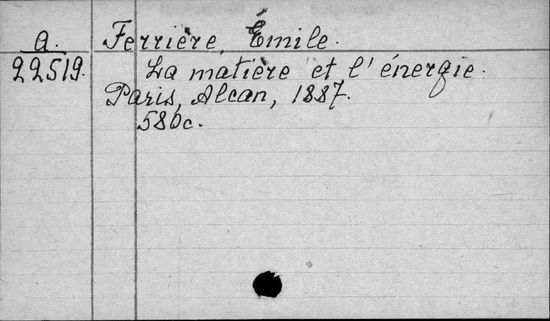 a. Ferrière, Émile.
22519. La matière et l'énergie.
Paris, Alcan, 1887.
580c.